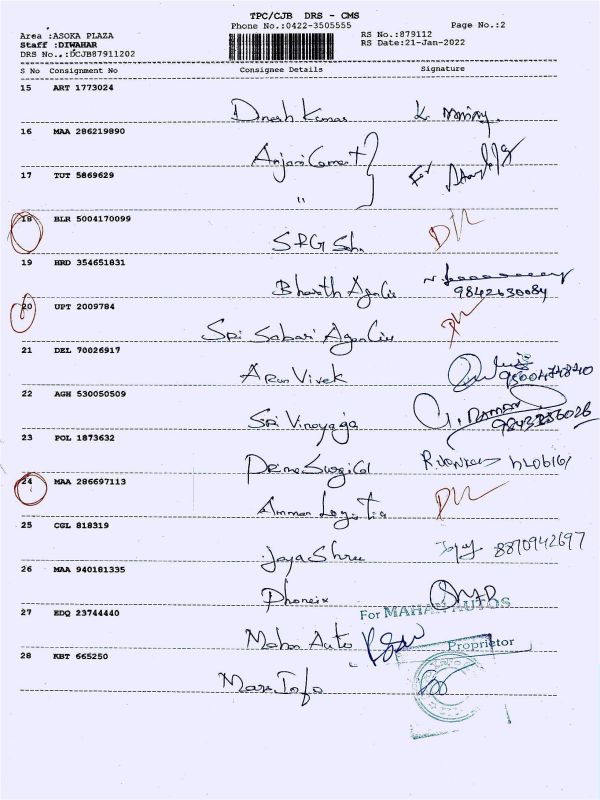 TPC/CJB DRS - CMS
Phone No.:0422-3505555 Page No.:2
Area :ASOKA PLAZA RS No.:879112
Staff :DIWAHAR RS Date:21-Jan-2022
DRS No.,:DCJB87911202
S No Consignment No Consignee Details Signature
15 ART 1773024
Dinesh Kumar
16 MAA 286219890
Anjani Cement
17 TUT 5869629 For
"
18 BLR 5004170099
SRG
19 HRD 354651831
Bharath Agencie
9842630084
20 UPT 2009784
Sri Sabari Agencies
21 DEL 70026917
Arun Vivek
9500474840
22 AGH 530050509
Sri Vinayaga
G. RAMAN
9843256026
23 POL 1873632
Surgical
24 MAA 286697113
Amman Logistic
25 CGL 818319
Jaya Shree 8870942697
26 MAA 940181335
Phoneix
For MAHAN AUTOS
27 EDQ 23744440
Mahan Auto
Proprietor
28 KBT 665250
Mars Info